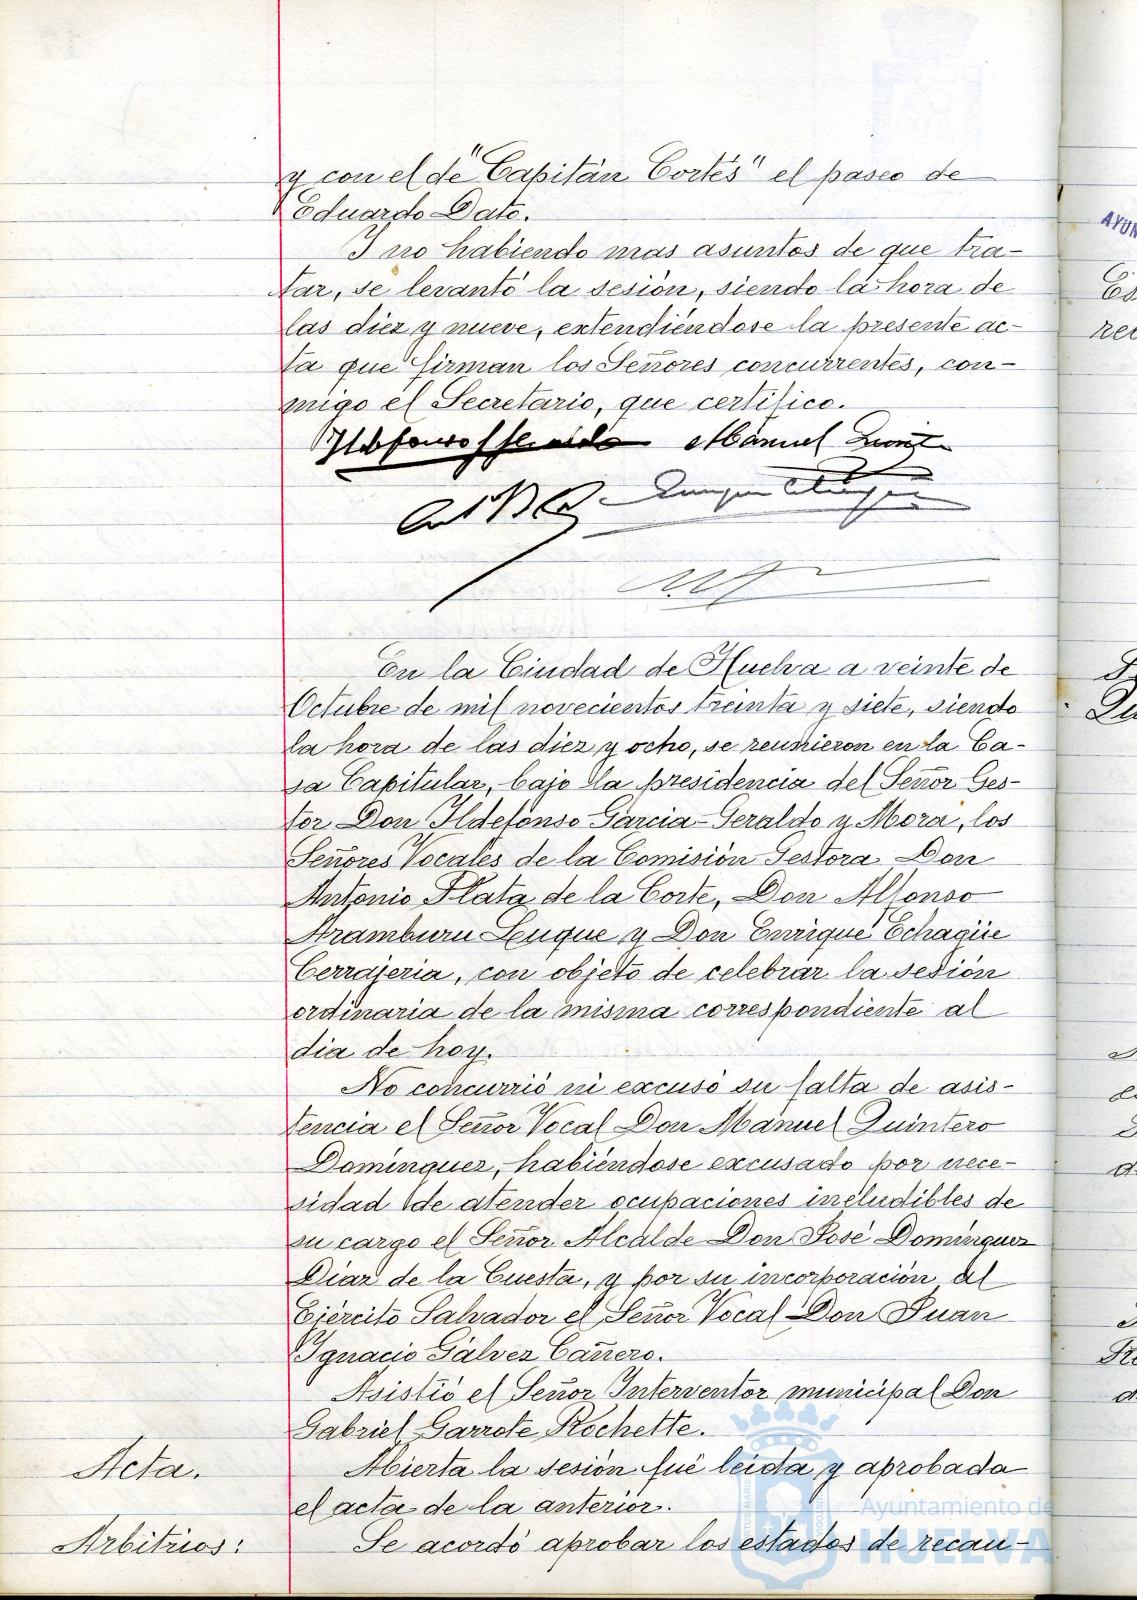 y con el de "Capitán Cortés" el paseo de
Eduardo Dato.
Y no habiendo mas asuntos de que tra-
tar, se levantó la sesión, siendo la hora de
las diez y nueve, extendiéndose la presente ac-
ta que firman los Señores concurrentes, con-
migo el Secretario, que certifico.
Manuel
En la Ciudad de Huelva a veinte de
Octubre de mil novecientos treinta y siete, siendo
la hora de las diez y ocho, se reunieron en la Ca-
sa Capitular, bajo la presidencia del Señor Ges-
tor Don Ildefonso Garcia-Geraldo y Mora, los
Señores Vocales de la Comisión Gestora Don
Antonio Plata de la Corte, Don Alfonso
Aramburu Luque y Don Enrique Echagüe
Cerrajeria, con objeto de celebrar la sesión
ordinaria de la misma correspondiente al
dia de hoy.
No concurrió ni excusó su falta de asis-
tencia el Señor Vocal Don Manuel Quintero
Dominguez, habiéndose excusado por nece-
sidad de atender ocupaciones ineludibles de
su cargo el Señor Alcalde Don José Domínguez
Diaz de la Cuesta, y por su incorporación al
Ejército Salvador el Señor Vocal Don Juan
Ignacio Gálvez Cañero.
Asistió el Señor Interventor municipal Don
Gabriel Garrote Rochette.
Acta. Abierta la sesión fué leida y aprobada
el acta de la anterior.
Arbitrios: Se acordó aprobar los estados de recau-
Ayuntamiento de
HUELVA